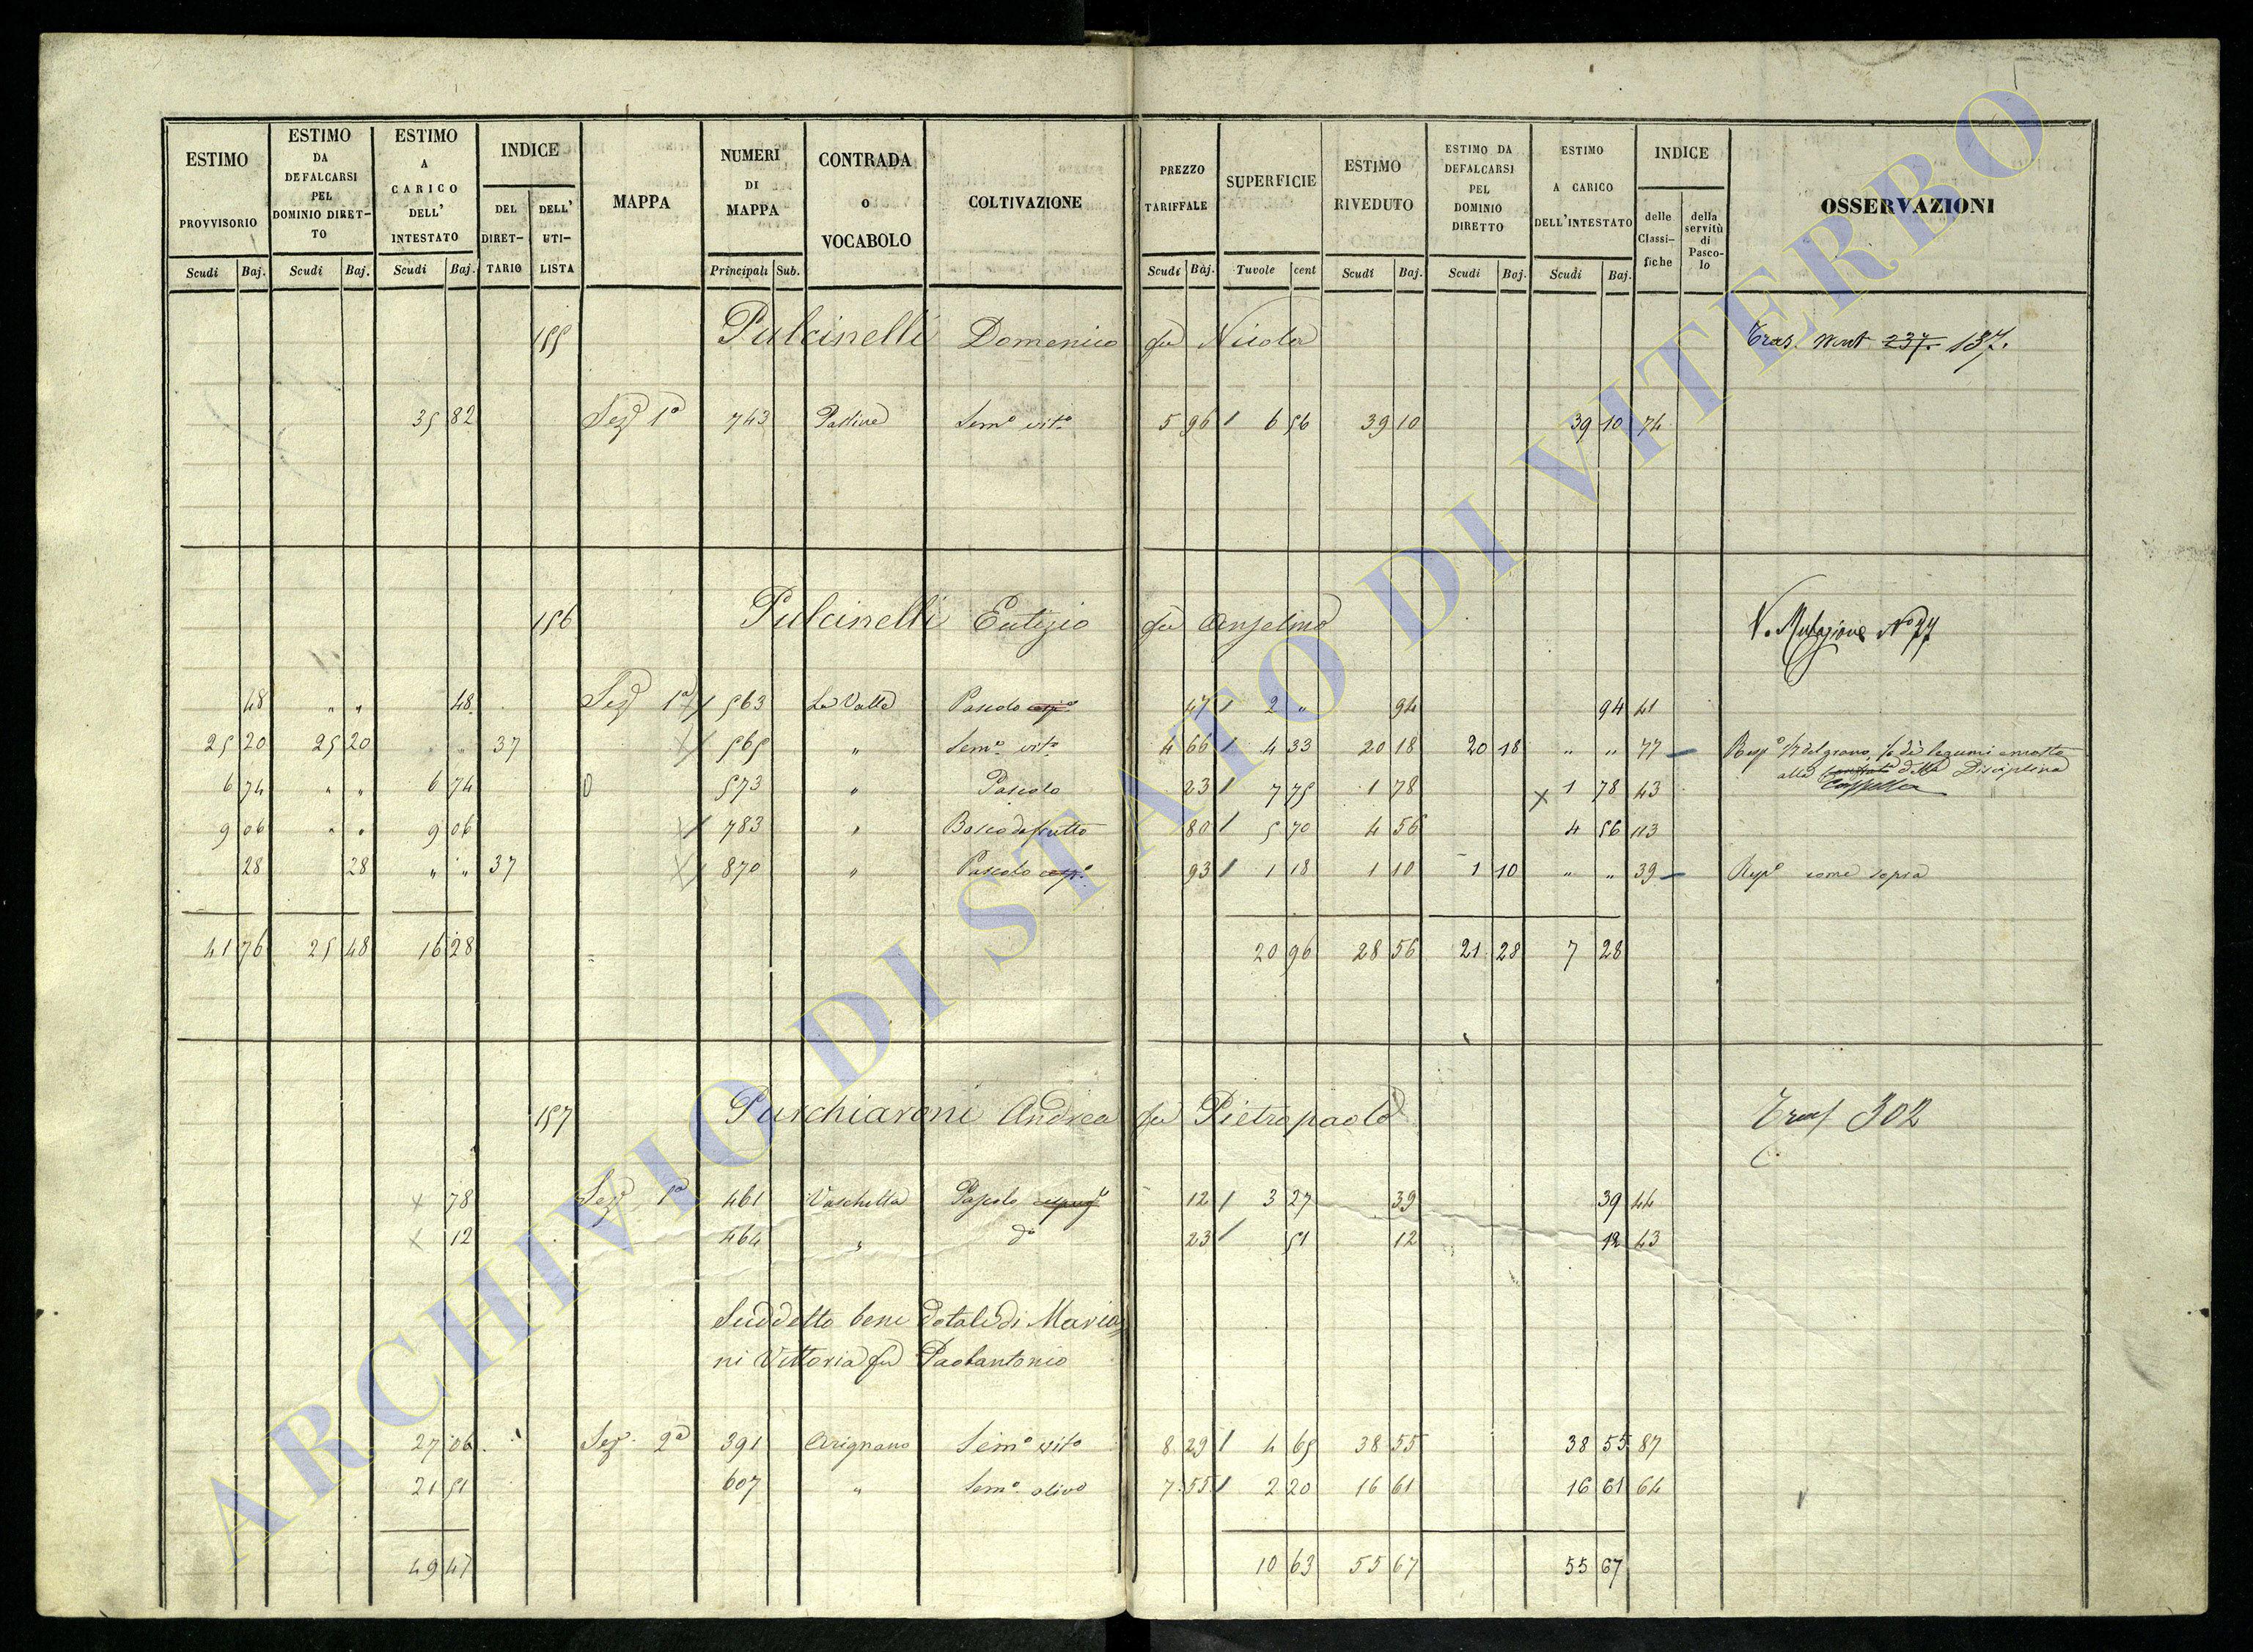 ESTIMO PROVVISORIO Scudi Baj.
ESTIMO DA DEFALCARSI PEL DOMINIO DIRETTO Scudi Baj.
ESTIMO A CARICO DELL' INTESTATO Scudi Baj.
INDICE DEL DIRETTARIO DELL' UTILISTA
MAPPA
NUMERI DI MAPPA Principali Sub.
CONTRADA o VOCABOLO
COLTIVAZIONE
PREZZO TARIFFALE Scudi Baj.
SUPERFICIE Tavole cent
ESTIMO RIVEDUTO Scudi Baj.
ESTIMO DA DEFALCARSI PEL DOMINIO DIRETTO Scudi Baj.
ESTIMO A CARICO DELL'INTESTATO Scudi Baj.
INDICE delle Classifiche della servitù di Pascolo
OSSERVAZIONI
155 Pulcinelli Domenico fu Nicola Tras. 237. 137.
35 82 Sezᵉ 1ª 743 Semᵒ vitᵒ 5 96 6 56 39 10 39 10 74
156 Pulcinelli Eutizio fu Anselmo V. Mutazione Nº 77
48 " " 48 Sezᵉ 1ª 563 La Valle Pascolo 47 2 " 94 94 41
25 20 25 20 " " 37 565 " Semᵒ vitᵒ 4 66 4 33 20 18 20 18 " " 77 Rispᵉ 1/7 del grano, di legumi e mosto
alla della Disciplina
6 74 " " 6 74 573 " Pascolo 23 7 75 1 78 1 78 43
9 06 " " 9 06 783 " Bosco da frutto 80 5 70 4 56 4 56 113
28 28 " " 37 870 " Pascolo 93 1 18 1 10 1 10 " " 39 Rispᵉ come sopra
41 76 25 48 16 28 20 96 28 56 21 28 7 28
157 Purchiaroni Andrea fu Pietropaolo Trasf 302
78 Sezᵉ 1ª 461 Vaschetta Pascolo 12 3 27 39 39 44
12 464 " dº 23 51 12 12 43
Suddetto bene dotale di Maria
ni Vittoria fu Paolantonio
27 06 Sezᵉ 2ª 391 Arignano Semᵒ vitᵒ 8 29 4 65 38 55 38 55 87
21 51 607 " Semᵒ olivᵒ 7 55 2 20 16 61 16 61 64
49 47 10 63 55 67 55 67
ARCHIVIO DI STATO DI VITERBO